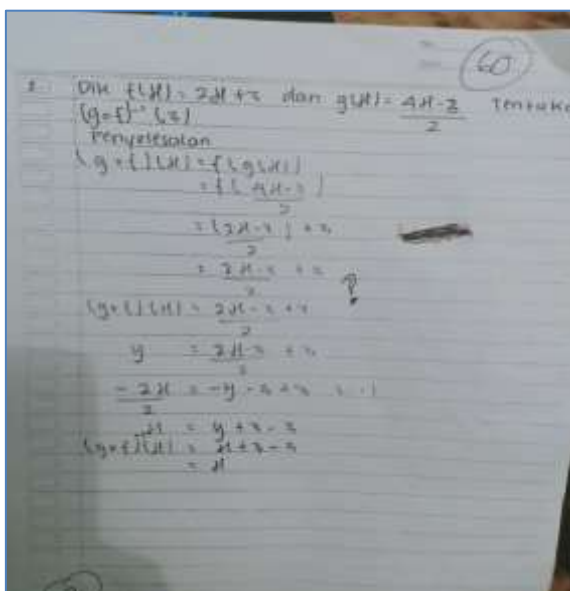 60
1 Dik f(x) = 2x + 3 dan g(x) = 4x - 3 / 2 Tentuka
(g∘f)⁻¹ (x)
Penyelesaian
(g∘f)(x) = f(g(x)
= f( 4x - 3 ) / 2
= (2x - 3) / 2 + 3
= 2x - 3 / 2 + 3
?
(g∘f)(x) = 2x - 3 / 2 + 3
y = 2x - 3 / 2 + 3
- 2x / 2 = -y - 3 + 3
x = y + 3 - 3
(g∘f)(x) = x + 3 - 3
= x